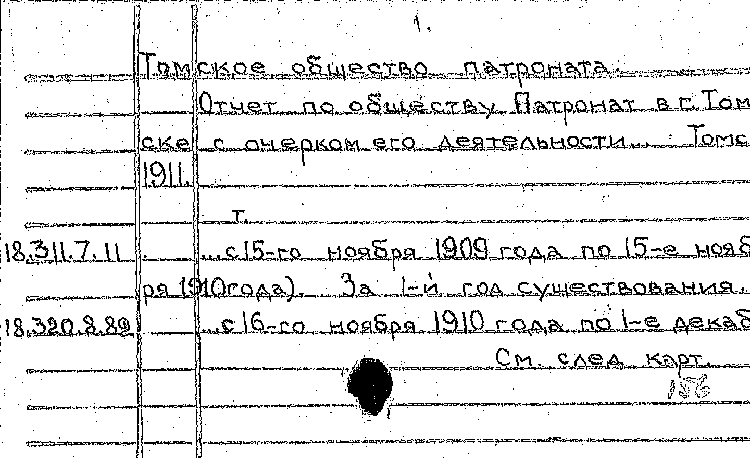 1.
Томское общество патроната.
Отчет по обществу Патронат в г. Том
ске с очерком его деятельности... Томс
1911.
т.
18.311.7.11 ...с 15-го ноября 1909 года по 15-е нояб
ря 1910 года). За 1-й год существования.
18.320.8.89 ...с 16-го ноября 1910 года по 1-е декаб
См. след карт.
156